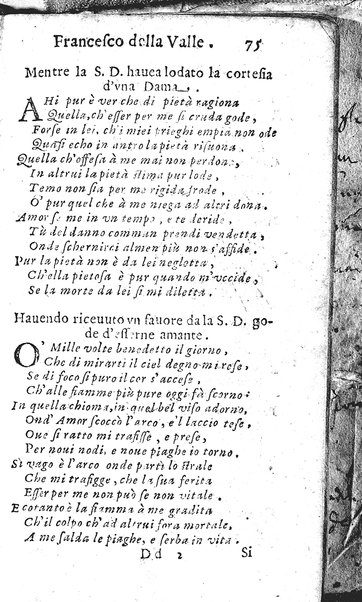 Francesco della Valle. 75
Mentre la S. D. hauea lodato la cortesia
d'vna Dama.
AHi pur è ver che di pietà ragiona
Quella, ch'esser per me si cruda gode,
Forse in lei, ch'i miei prieghi empia non ode
Quasi echo in antro la pietà risuona.
Quella ch'offesa à me mai non perdona,
In altrui la pietà stima pur lode,
Temo non sia per me rigida frode,
O' pur quel che à me niega ad altri dona.
Amor se me in vn tempo, e te deride,
Tù del danno comman prendi vendetta,
Onde schernirci almen più non s'affide.
Pur la pietà non è da lei negletta,
Ch'ella pietosa è pur quando m'vccide,
Se la morte da lei sì mi diletta.
Hauendo riceuuto vn fauore da la S. D. go-
de d'esserne amante.
O' Mille volte benedetto il giorno,
Che di mirarti il ciel degno mi rese,
Se di foco sì puro il cor s'accese,
Ch'alle fiamme più pure oggi fà scorno:
In quella chioma, in quel bel viso adorno,
Ond' Amor scoccò l'arco, e'l laccio tese,
Oue sì ratto mi trafisse, e prese,
Per noui nodi, e noue piaghe io torno.
Sì vago è l'arco onde partì lo strale
Che mi trafigge, che la sua ferita
Esser per me non può se non vitale.
E cotanto è la fiamma à me gradita
Ch'il colpo ch'ad altrui fora mortale,
A me salda le piaghe, e serba in vita.
D d 2 Si